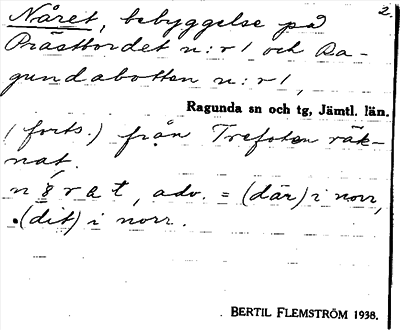 2.
Nåret, bebyggelse på
Prästbordet n:r 1 och Ra-
gundabotten n:r 1,
Ragunda sn och tg, Jämtl. län.
(forts.) från Trefoten räk-
nat,
, adv. = (där) i norr,
(dit) i norr.
BERTIL FLEMSTRÖM 1938.